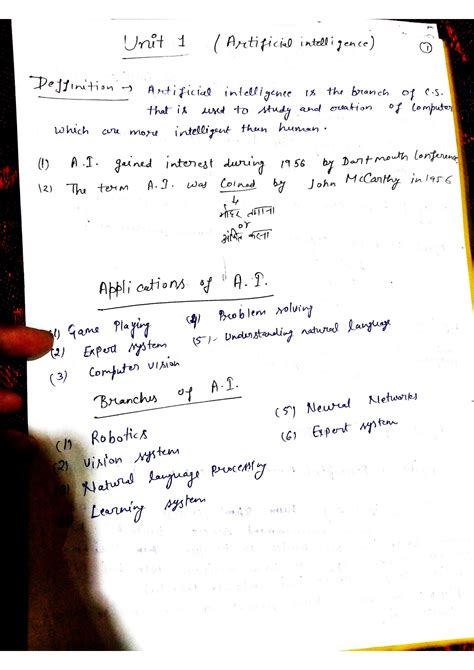 Unit 1 (Artificial intelligence)
1
Deffinition → Artificial intelligence is the branch of C.S.
that is used to study and cration of computer
which are more intelligent than human.
(1) A.I. gained interest during 1956 by Dartmouth Conference
(2) The term A.I. was Coined by John McCarthy in 1956
मोहर लगाना
or
अंकित करना
Applications of A.I.
(1) Game Playing (4) Problem solving
(2) Expert system (5) - Understanding natural language
(3) Computer vision
Branches of A.I.
(1) Robotics (5) Neural Networks
(2) Vision system (6) Expert system
Natural language processing
Learning system